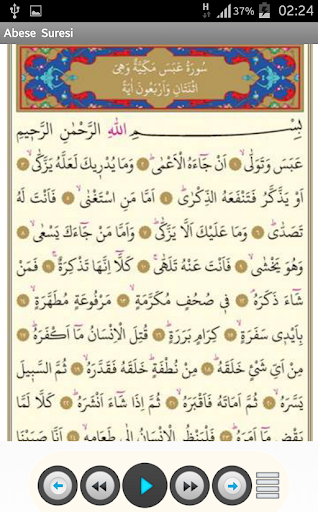 H 37% 02:24
Abese Suresi
سُورَةُ عَبَسَ مَكِّيَّةٌ وَهِيَ
اثْنَتَانِ وَاَرْبَعُونَ اٰيَةً
بِسْمِ اللهِ الرَّحْمٰنِ الرَّحِيمِ
عَبَسَ وَتَوَلّٰىۙ ﴿١﴾ اَنْ جَٓاءَهُ الْاَعْمٰىۜ ﴿٢﴾ وَمَا يُدْرِيكَ لَعَلَّهُ يَزَّكّٰىۙ ﴿٣﴾
اَوْ يَذَّكَّرُ فَتَنْفَعَهُ الذِّكْرٰىۜ ﴿٤﴾ اَمَّا مَنِ اسْتَغْنٰىۙ ﴿٥﴾ فَاَنْتَ لَهُ
تَصَدّٰىۜ ﴿٦﴾ وَمَا عَلَيْكَ اَلَّا يَزَّكّٰىۜ ﴿٧﴾ وَاَمَّا مَنْ جَٓاءَكَ يَسْعٰىۙ ﴿٨﴾
وَهُوَ يَخْشٰىۙ ﴿٩﴾ فَاَنْتَ عَنْهُ تَلَهّٰىۚ ﴿١٠﴾ كَلَّٓا اِنَّهَا تَذْكِرَةٌۚ ﴿١١﴾ فَمَنْ
شَٓاءَ ذَكَرَهُۢ ﴿١٢﴾ فِي صُحُفٍ مُكَرَّمَةٍۙ ﴿١٣﴾ مَرْفُوعَةٍ مُطَهَّرَةٍۙ ﴿١٤﴾
بِاَيْدِي سَفَرَةٍۙ ﴿١٥﴾ كِرَامٍ بَرَرَةٍۜ ﴿١٦﴾ قُتِلَ الْاِنْسَانُ مَٓا اَكْفَرَهُۜ ﴿١٧﴾
مِنْ اَيِّ شَيْءٍ خَلَقَهُۜ ﴿١٨﴾ مِنْ نُطْفَةٍۜ خَلَقَهُ فَقَدَّرَهُۙ ﴿١٩﴾ ثُمَّ السَّبِيلَ
يَسَّرَهُۙ ﴿٢٠﴾ ثُمَّ اَمَاتَهُ فَاَقْبَرَهُۙ ﴿٢١﴾ ثُمَّ اِذَا شَٓاءَ اَنْشَرَهُۜ ﴿٢٢﴾ كَلَّا لَمَّا
يَقْضِ مَٓا اَمَرَهُۜ ﴿٢٣﴾ فَلْيَنْظُرِ الْاِنْسَانُ اِلٰى طَعَامِهِۙ ﴿٢٤﴾ اَنَّا صَبَبْنَا